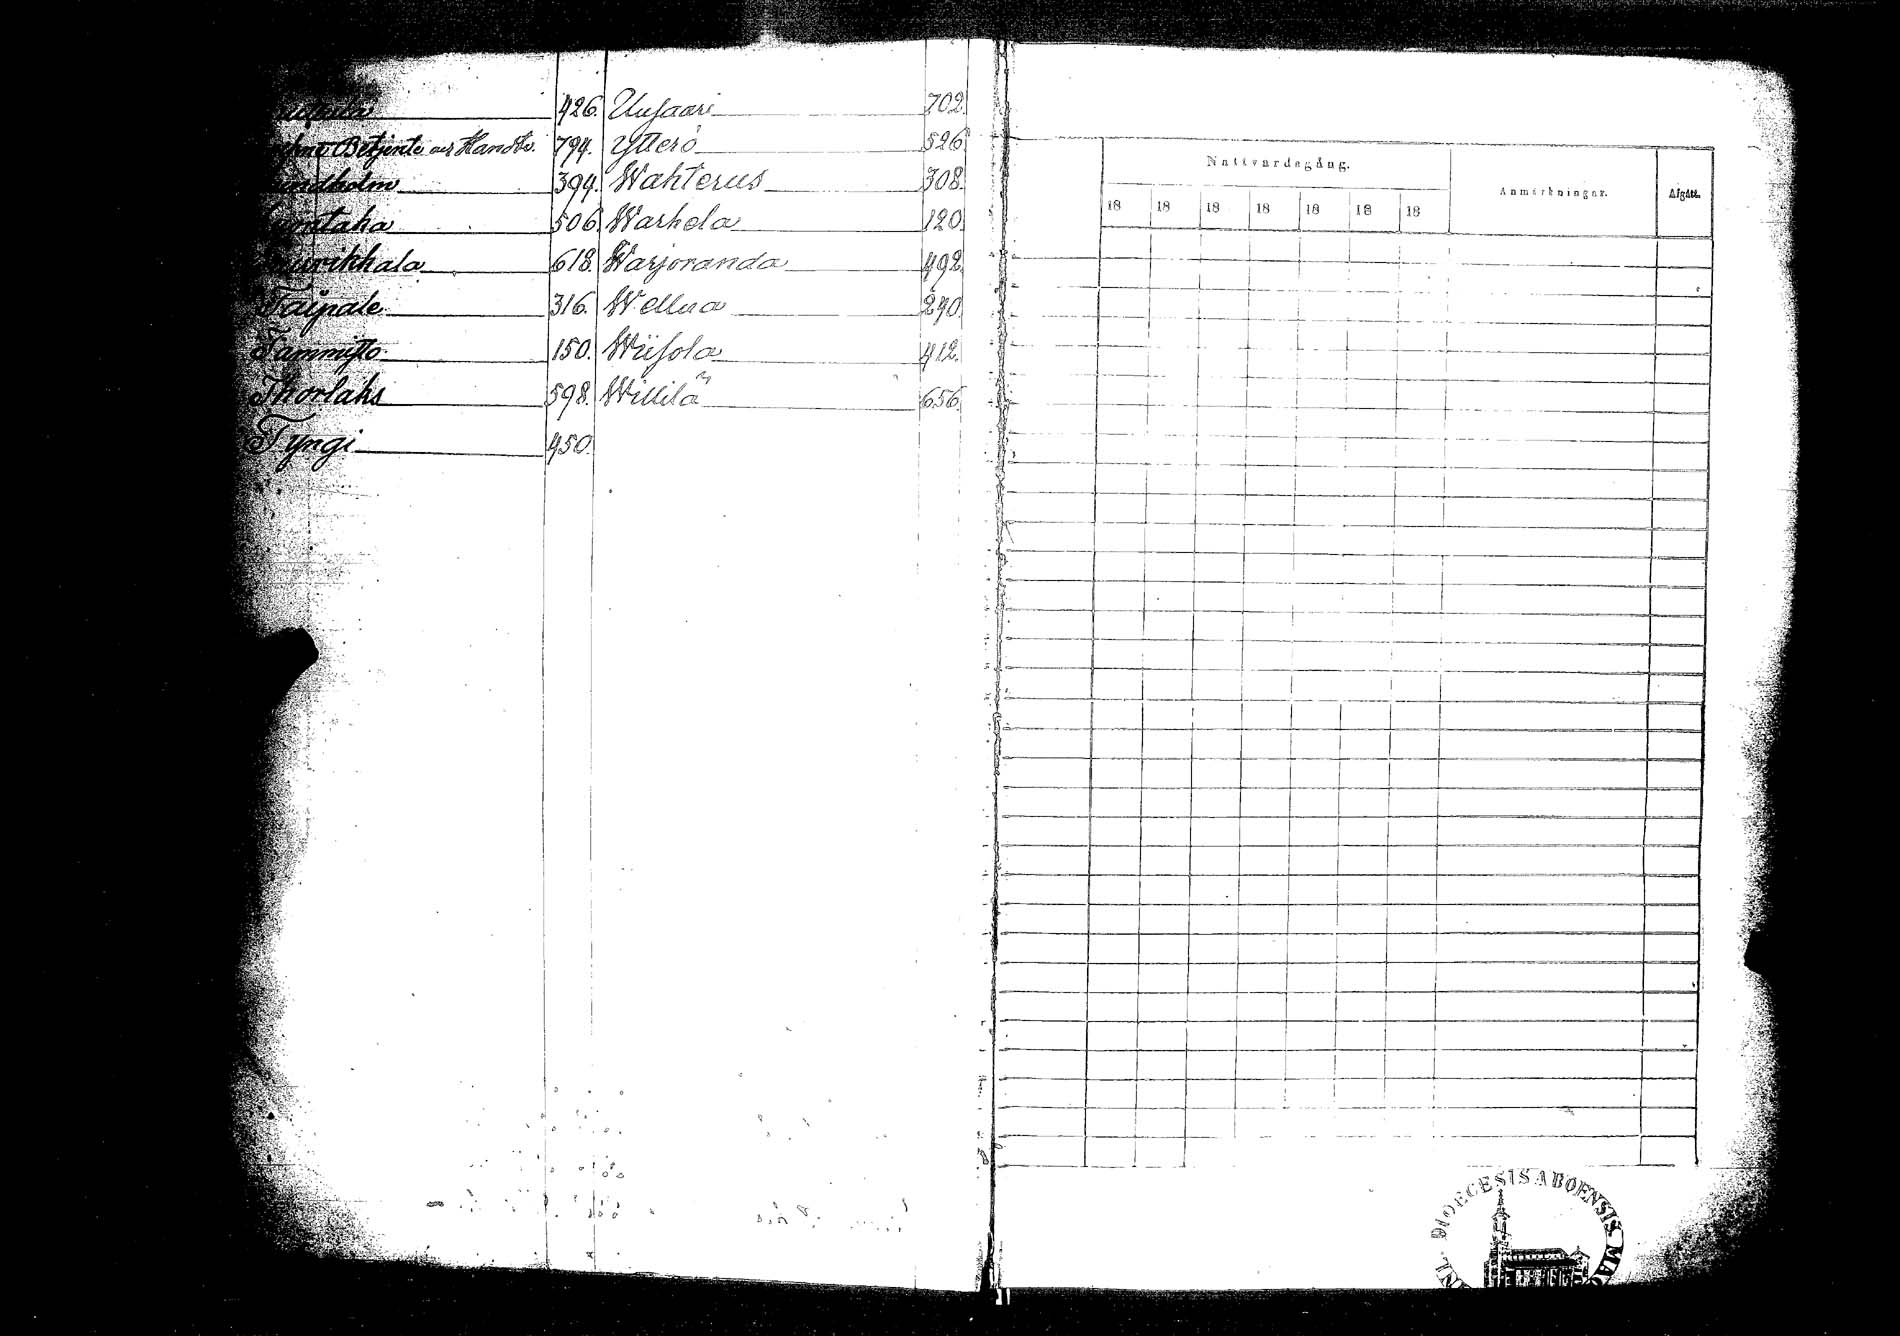 426. Uusaari 702.
Betjente och Handtv. 794. Ytterö 526
Sundholm 394. Wahterus 308.
506. Warhela 120.
618. Warjoranda 492.
Taipale 316. Wellua 240.
Tammisto 150. Wiisola 412.
Thorlaks 598. Willilä 656.
Tyngi 450.
Nattvardsgång. Anmärkningar. Afgått.
18 18 18 18 18 18 18
DIOECESIS ABOENSIS